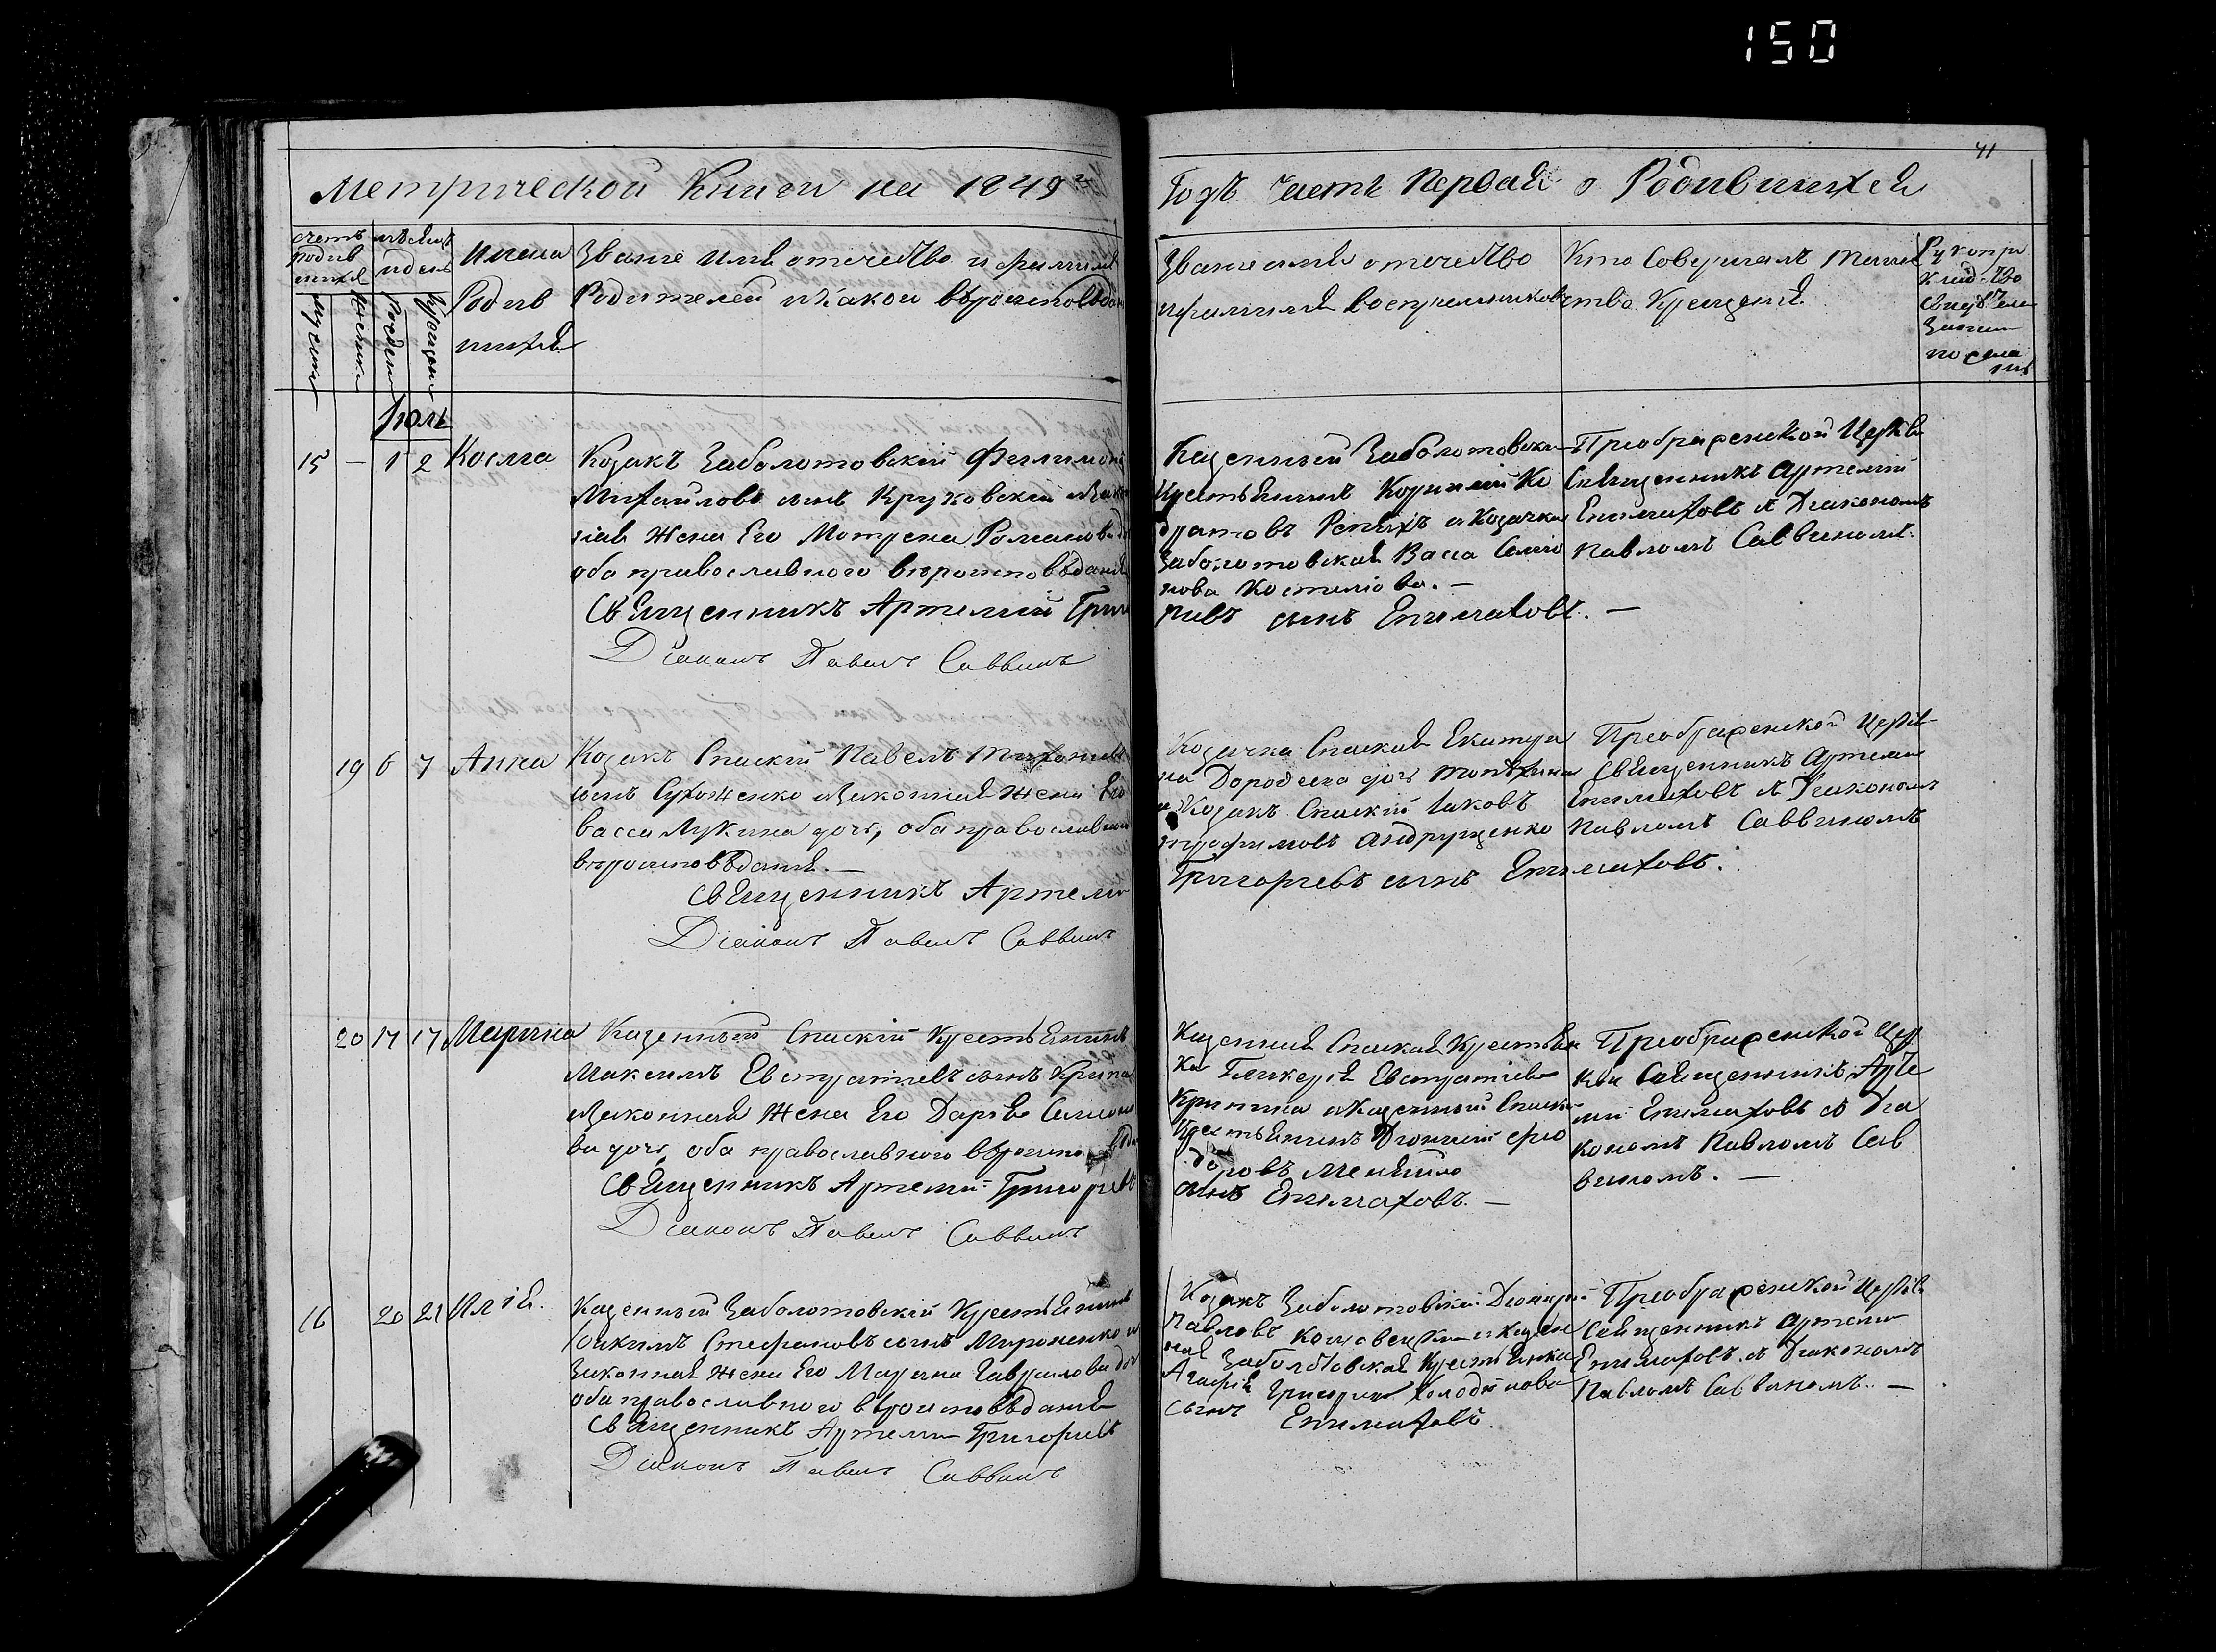 150
41
Метрической Книги на 1849й
Годъ Часть Первая о Родившихся
счетъ
родив
шихся
мѣсяцъ
и день
Имена
Родив
шихся
Званіе имя отечество и фамилія
Родителей и какои вѣроисповѣдан
Званіе имя отечество
и фамилія воспріемниковъ
Кто Совершалъ таинс
тво Крещенія
Рукопри
кладство
свидѣтеле
записи
по жела
нію
мужеска
женска
Рожден
Крещен
Іюль
15 — 1 2 Косма
Козакъ Заболотовскій Филимонъ
Михайловъ сынъ Круковскій и Зако
ная Жена Его Мотрена Романова до
оба православного вѣроисповѣданія
Священникъ Артемій Григо
Діаконъ Павелъ Саввинъ
Казенный Заболотовски
Крестьянинъ Корнилій Ко
дратовъ Репяхъ и Козачка
Заболотовская Васса Симо
нова Костилюва. —
риевъ сынъ Епимаховъ. —
Преображенской Церкви
Священникъ Артемій
Епимаховъ съ Діакономъ
Павломъ Саввиномъ.
19 6 7 Анна
Козакъ Спаскій Павелъ Тихоновъ
сынъ Сухоженко и Законная Жена Его
Васса Лукина дочь, оба православного
вѣроисповѣданія. —
Священникъ Артеми
Діаконъ Павелъ Саввинъ
Козачка Спаская Екатери
на Дорофеева дочь
и Козакъ Спаскій Іаковъ
трофимовъ Андрущенко
Григорьевъ сынъ Епимаховъ.
Преображенской Церкв
Священникъ Артемий
Епимаховъ съ Діакономъ
Павломъ Саввиномъ
20 17 17 Марина
Казенный Спаскій Крестьянинъ
Максимъ Евстратіевъ сынъ Крипа
и Законная Жена Его Дарья Симоно
ва дочь, оба православного вѣроиспов
Священникъ Артемий Григорьевъ
Діаконъ Павелъ Саввинъ
Казенная Спаская Крестьян
ка Гликерія Евстратіева
Крипина и Казенный Спаски
Крестьянинъ Діонисій Фео
доровъ
сынъ Епимаховъ. —
Преображенской Цер
кви Священникъ Арте
мий Епимаховъ съ Діа
кономъ Павломъ Сав
виномъ. —
16 20 21 Илія.
Казенный Заболотовскій Крестьянинъ
Іоакимъ Стефановъ сынъ Мироненко и
Законная Жена Его Марина Гаврилова до
оба православного вѣроисповѣданія
Священникъ Артемий Григорьевъ
Діаконъ Павелъ Саввинъ
Козакъ Заболотовский Діонисий
Павловъ и Казен
ная Заболотовская Крестьянка
Агафія Григорева Колодякова
сынъ Епимаховъ.
Преображенской Церкв
Священникъ Артемий
Епимаховъ съ Діакономъ
Павломъ Саввиномъ. —